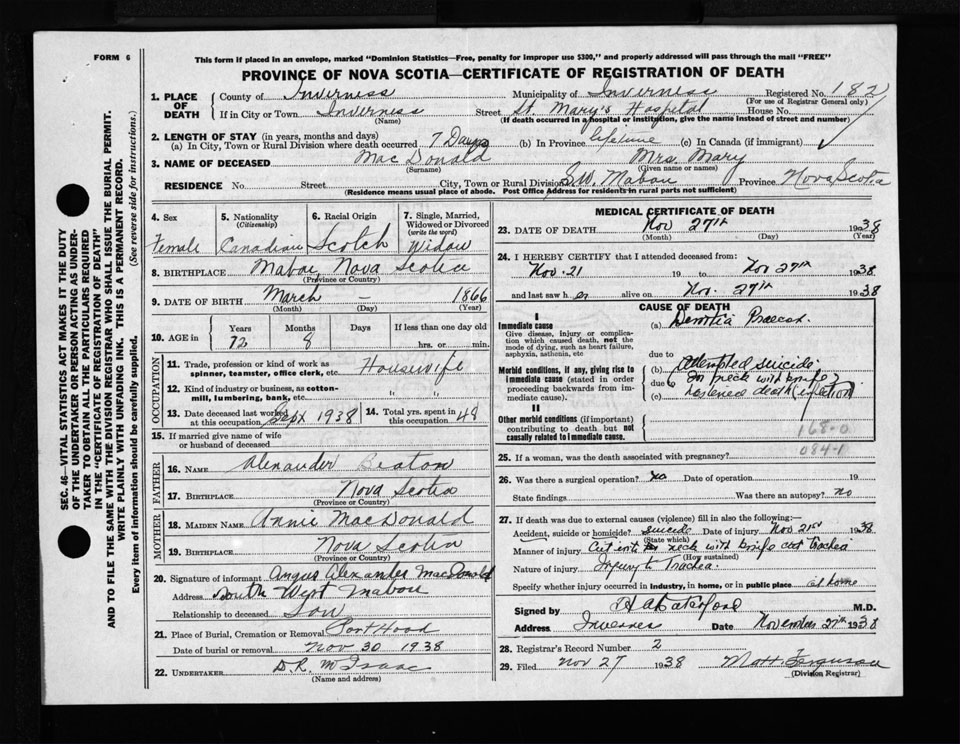 FORM 6
This form if placed in an envelope, marked "Dominion Statistics—Free, penalty for improper use $300," and properly addressed will pass through the mail "FREE"
PROVINCE OF NOVA SCOTIA—CERTIFICATE OF REGISTRATION OF DEATH
SEC. 46—VITAL STATISTICS ACT MAKES IT THE DUTY
OF THE UNDERTAKER OR PERSON ACTING AS UNDER-
TAKER TO OBTAIN ALL THE PARTICULARS REQUIRED
IN THE "CERTIFICATE OF REGISTRATION OF DEATH"
AND TO FILE THE SAME WITH THE DIVISION REGISTRAR WHO SHALL ISSUE THE BURIAL PERMIT.
WRITE PLAINLY WITH UNFADING INK. THIS IS A PERMANENT RECORD.
Every item of information should be carefully supplied. (See reverse side for instructions.)
1. PLACE OF DEATH
County of Inverness Municipality of Inverness Registered No. 182
(For use of Registrar General only)
If in City or Town Inverness Street St. Mary's Hospital House No.
(Name) (If death occurred in a hospital or institution, give the name instead of street and number)
2. LENGTH OF STAY (in years, months and days)
(a) In City, Town or Rural Division where death occurred 7 Days (b) In Province lifetime (c) In Canada (if immigrant)
3. NAME OF DECEASED MacDonald Mrs. Mary
(Surname) (Given name or names)
RESIDENCE No. Street City, Town or Rural Division S.W. Mabou Province Nova Scotia
(Residence means usual place of abode. Post Office Address for residents in rural parts not sufficient)
4. Sex
Female
5. Nationality
(Citizenship)
Canadian
6. Racial Origin
Scotch
7. Single, Married,
Widowed or Divorced
(write the word)
Widow
8. BIRTHPLACE Mabou, Nova Scotia
(Province or Country)
9. DATE OF BIRTH March — 1866
(Month) (Day) (Year)
10. AGE in
Years Months Days If less than one day old
72 8 hrs. or min.
OCCUPATION
11. Trade, profession or kind of work as
spinner, teamster, office clerk, etc. Housewife
12. Kind of industry or business, as cotton-
mill, lumbering, bank, etc. " "
13. Date deceased last worked
at this occupation Sept 1938
14. Total yrs. spent in
this occupation 48
15. If married give name of wife
or husband of deceased
FATHER
16. NAME Alexander Beaton
17. BIRTHPLACE Nova Scotia
(Province or Country)
MOTHER
18. MAIDEN NAME Annie MacDonald
19. BIRTHPLACE Nova Scotia
(Province or Country)
20. Signature of informant Angus Alexander MacDonald
Address South West Mabou
Relationship to deceased Son
21. Place of Burial, Cremation or Removal Port Hood
Date of burial or removal Nov 30 1938
22. UNDERTAKER D.R. McIsaac
(Name and address)
MEDICAL CERTIFICATE OF DEATH
23. DATE OF DEATH Nov 27th 1938
(Month) (Day) (Year)
24. I HEREBY CERTIFY that I attended deceased from:
Nov. 21 19 to Nov 27th 1938
and last saw h er alive on Nov. 27th 1938
CAUSE OF DEATH
I
Immediate cause
Give disease, injury or complica-
tion which caused death, not the
mode of dying, such as heart failure,
asphyxia, asthenia, etc
(a) Demetia Praecox
due to
Morbid conditions, if any, giving rise to
immediate cause (stated in order
proceeding backwards from im-
mediate cause).
(b) Attempted suicide
due to on neck with knife
(c) hastened death (infection)
II
Other morbid conditions (if important)
contributing to death but not
causally related to immediate cause.
168-0
084-1
25. If a woman, was the death associated with pregnancy?
26. Was there a surgical operation? No Date of operation 19
State findings Was there an autopsy? No
27. If death was due to external causes (violence) fill in also the following:—
Accident, suicide or homicide? Suicide Date of injury Nov 21st 1938
(State which)
Manner of injury Cut into neck with knife cut Trachea
(How sustained)
Nature of injury Injury to Trachea.
Specify whether injury occurred in industry, in home, or in public place at home
Signed by M.D.
Address Inverness Date November 27th 1938
28. Registrar's Record Number 2
29. Filed Nov 27 1938 Matt. Ferguson
(Division Registrar)